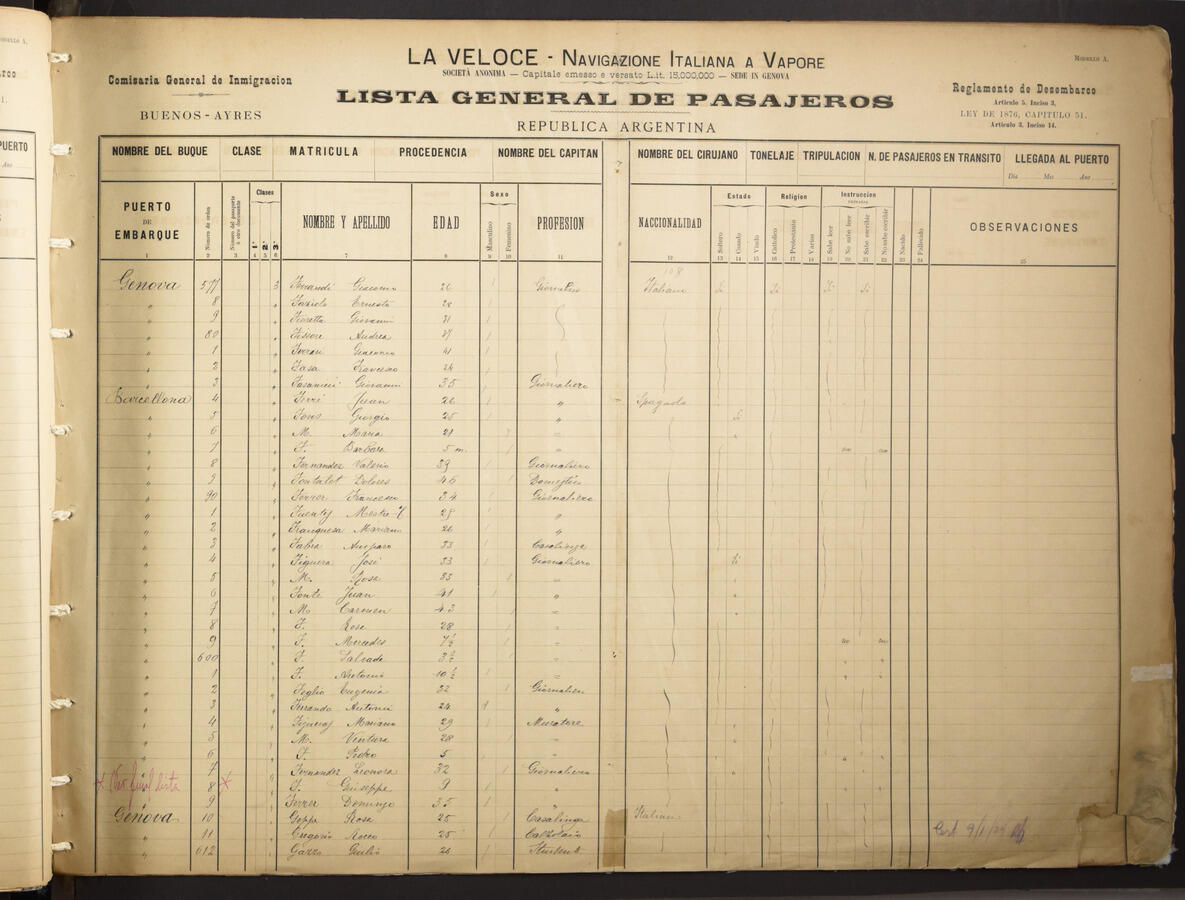 LA VELOCE - NAVIGAZIONE ITALIANA A VAPORE
MODELLO A.
SOCIETÀ ANONIMA — Capitale emesso e versato L.it. 15,000,000 — SEDE IN GENOVA
Comisaria General de Inmigracion
BUENOS-AYRES
LISTA GENERAL DE PASAJEROS
REPUBLICA ARGENTINA
Reglamento de Desembarco
Articulo 5. Inciso 3.
LEY DE 1876, CAPITULO 51.
Articulo 3. Inciso 14.
NOMBRE DEL BUQUE CLASE MATRICULA PROCEDENCIA NOMBRE DEL CAPITAN NOMBRE DEL CIRUJANO TONELAJE TRIPULACION N. DE PASAJEROS EN TRANSITO LLEGADA AL PUERTO
Dia Mes Ano
PUERTO DE EMBARQUE Número de orden Clases 1. 2. 3. NOMBRE Y APELLIDO EDAD Sexo Masculino Femenino PROFESION NACCIONALIDAD Estado Soltero Casado Viudo Religion Catolico Protestante Varios Instruccion Sabe leer No sabe leer Sabe escribir No sabe escribir Nacido Fallecido OBSERVACIONES
1 2 3 4 5 6 7 8 9 10 11 12 13 14 15 16 17 18 19 20 21 22 23 24 25
108
Genova 577 3 Giacomo 26 Giornaliero Italiano
8 Ernesto 28
9 Fioretta Giovanni 31
80 Andrea
1 Ferrari Giacomo 41
2 Fasa Francesco 24
3 Giovanni 35 Giornaliero
Barcellona 4 Ferri Juan 26 " Spagnola
5 Giorgio 25 "
6 M. Maria 21
7 F. Barbara 5 m.
8 Fernandez Valerio 39 Giornaliero
9 Dolores 46 Domestica
90 Ferrer Francesco 34 Giornaliero
1 Fuentes "
2 Franquesa Mariano 26 "
3 Fabra Amparo 33 Casalinga
4 Figuera José 33 Giornaliero
5 M. Rosa 35
6 Fonte Juan 41 "
7 M. Carmen 43
8 F. Rosa 28
9 F. Mercedes 7½
600 F. Salvade
1 F. Antonio 10½
2 Foglio Eugenia 32 Giornalier
3 Ferrando Antoni 24 "
4 Figueras Mariano 29 Muratore
5 M. Ventura 28
6 F. Pedro 5
7 Fernandez Leonora 32 Giornaliera
x Ver final lista 8 x F. Giuseppe 9 "
9 Ferrer Domingo 35 "
Genova 10 Goppa Rosa 25 Casalinga Italiana
11 Gregorio Rocco 25 Calzolaio
612 Gazzo Giulio 26 Student